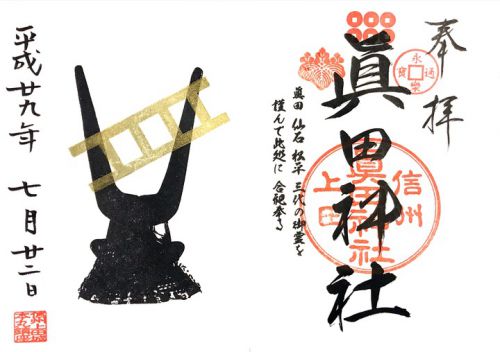 奉拝
永楽通寳
眞田神社
信州
上田
眞田神社
眞田 仙石 松平 三代の御霊を
謹んで此処に 合祀奉る
平成廿九年 七月廿二日